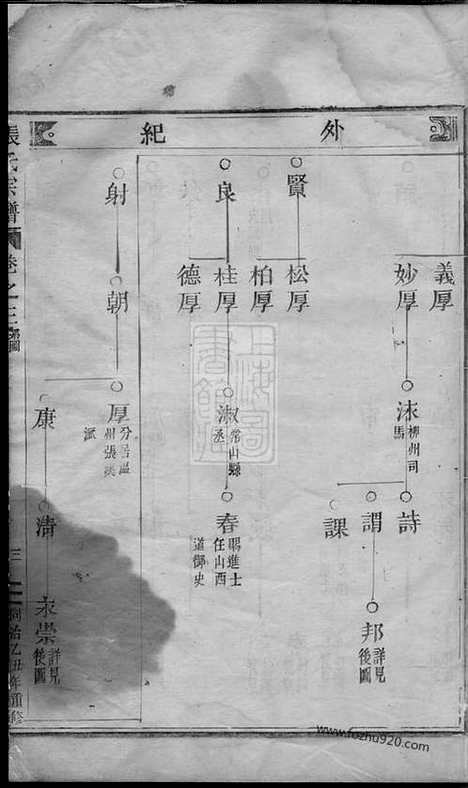 外紀
義厚
妙厚
沭
柳州司馬
詩
謂
課
邦
詳見後圖
賢
松厚
柏厚
良
桂厚
德厚
淑
常山縣丞
春
賜進士任山西道御史
射
朝
厚
分居溫州張溪派
康
清
永崇
詳見後圖
張氏宗譜
卷之三
三
同治乙丑年重修
上海圖書館藏
www.fozhu920.com